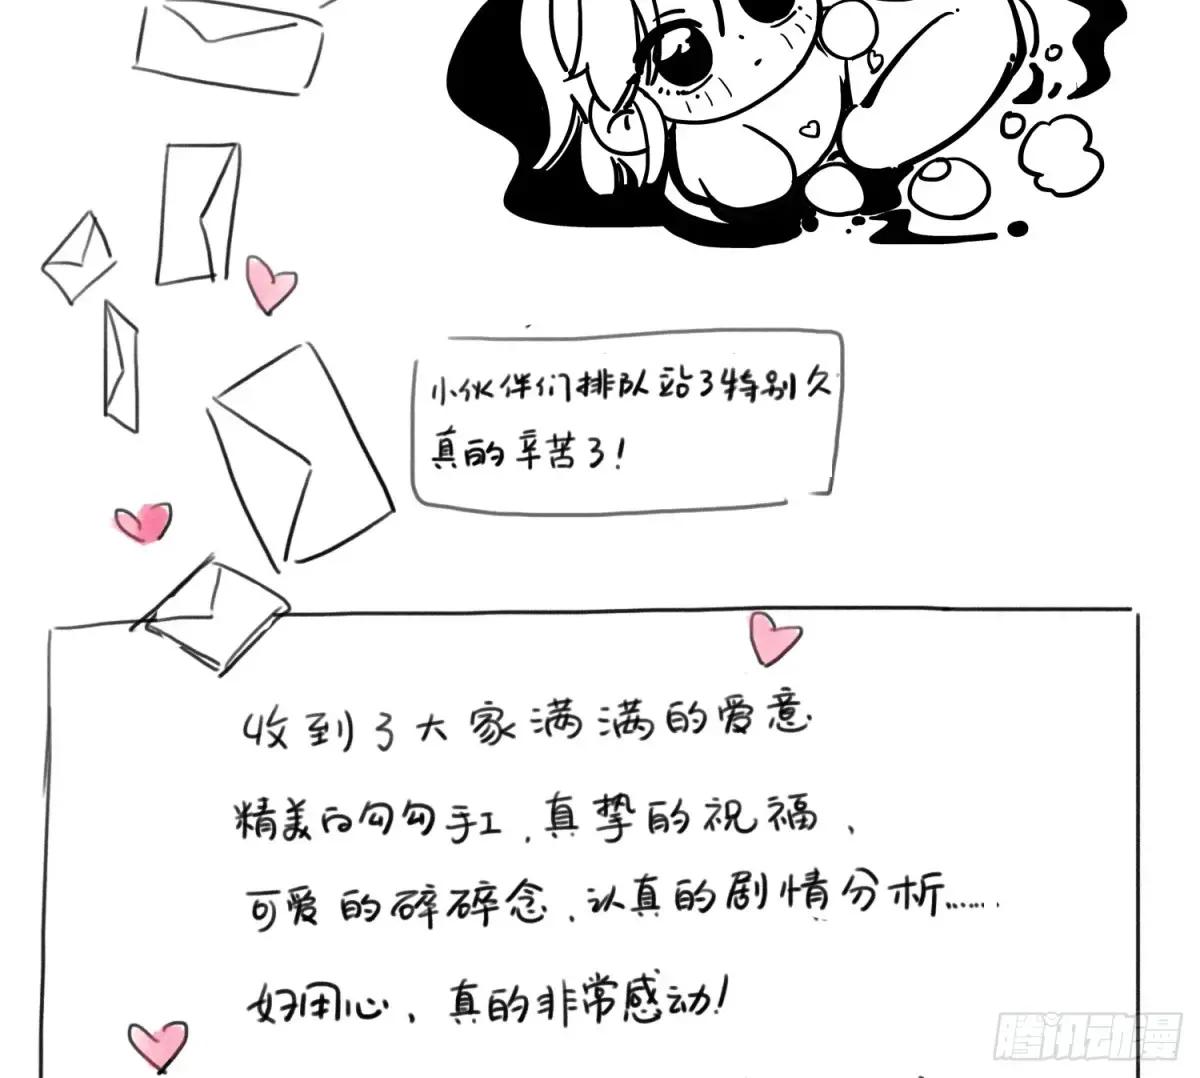 小伙伴们排队站了特别久
真的辛苦了!
收到了大家满满的爱意
精美的勾勾手工,真挚的祝福、
可爱的碎碎念、认真的剧情分析......
好用心,真的非常感动!
腾讯动漫